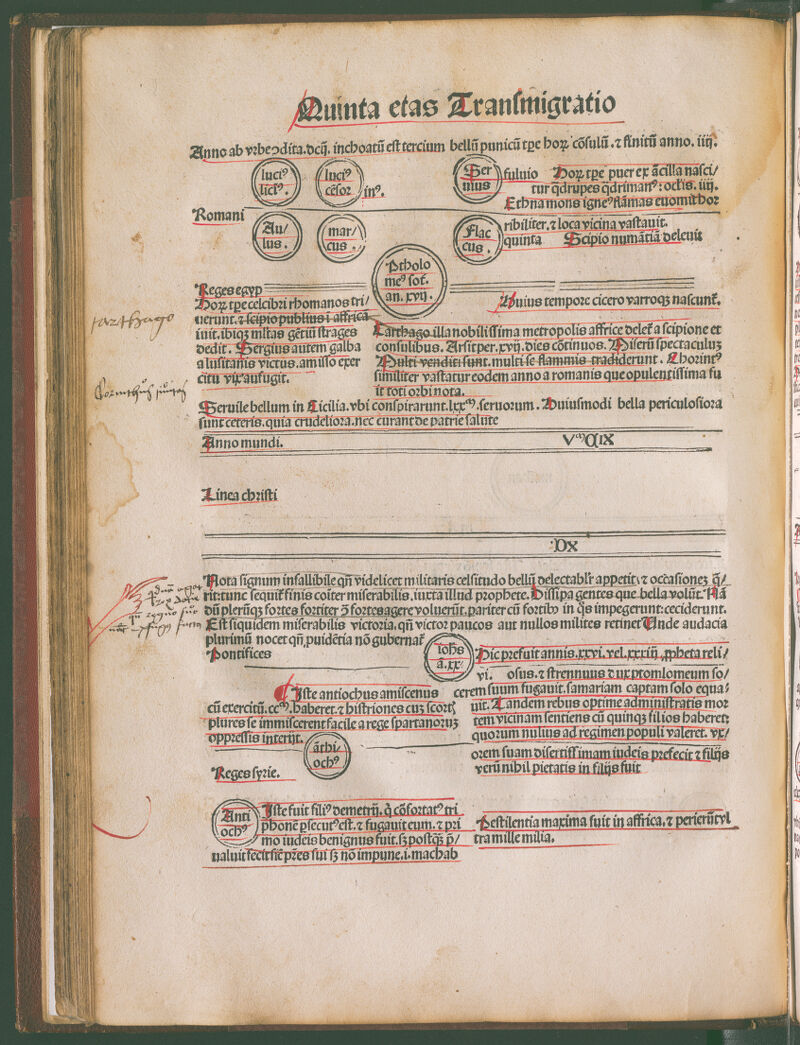 Quinta etas Transmigratio
Anno ab vrbe ↄdita.dcij. inchoatū est tercium bellū punicū tꝑe hoꝝ cōsulū.⁊ finitū anno. iiij.
luciꝰ
licīꝰ.
luciꝰ
cēsor inꝰ.
Ser
uius
fuluio Hoꝝ tꝑe puer ex ācilla nasci/
tur q̄drupes q̄drimanꝰ: oclis. iiij.
Ethna mons igneꝰ flāmas euomit hor
Romani
Au/
lus.
mar/
cus.
Flac
cus.
ribiliter.⁊ loca vicina vastauit.
quinta Scipio numātiā deleuit
Ptholo
meꝰ sot.
an. xvij.
Reges egyp
Huius tempore cicero varroqꝫ nascunt̄.
Hoꝝ tꝑe celcibri rhomanos tri/
uerunt.⁊ scipio publius i affrica
iuit.ibiqꝫ mltas gētiū strages
dedit. Sergius autem galba
a lusitanis victus.amisso exer
citu vix aufugit.
Carthago illa nobilissima metropolis affrice delet̄ a scipione et
consulibus. Arsit per.xvij.dies cōtinuos. Miserū spectaculuꝫ
Multi venditi sunt.multi se flammis tradiderunt. Chorintꝰ
similiter vastatur eodem anno a romanis que opulentissima fu
it toti orbi nota.
Seruile bellum in Cicilia.vbi conspirarunt.lxxᵐ.seruorum. Huiusmodi bella periculosiora
sunt ceteris.quia crudeliora.nec curant de patrie salute
Anno mundi. VᵐCIX
carthago
Linea christi
DX
Nota signum infallibile qn̄ videlicet militaris celsitudo bellū delectabl̄r appetit.⁊ occasiones q̄/
rit:tunc sequit̄ finis cōiter miserabilis.iuxta illud prophete. Dissipa gentes que bella volūt. Nā
dū plerūqꝫ fortes fortiter ↄ̄ fortes agere voluerūt.pariter cū fortibꝰ in q̄s impegerunt:ceciderunt.
Est siquidem miserabilis victoria.qn̄ victor paucos aut nullos milites retinet Unde audacia
plurimū nocet qn̄ puidētia nō gubernat̄
Pontifices
ioh̄s
ā.xxᵛ
Hic prefuit annis.xxvi.vel.xxxiij.ꝓpheta reli/
vi. osus.⁊ strennuus dux ptomlomeum so/
Iste antiochus amiscenus
cerem suum fugauit.samariam captam solo equa/
cū exercitū.ccᵐ.haberet.⁊ histriones cuꝫ scortꝭ
uit. Tandem rebus optime administratis mor
plures se immiscerent facile a rege spartanoruꝫ
tem vicinam sentiens cū quinqꝫ filios haberet:
oppressis interijt.
quorum nullus ad regimen populi valeret. vx/
āthi/
ochꝰ
orem suam disertissimam iudeis prefecit ⁊ filijs
Reges syrie.
verū nihil pietatis in filijs fuit
Anti
ochꝰ
Iste fuit filiꝰ demetrij. q̄ cōfortatꝰ tri
phonē ꝑsecutꝰ est.⁊ fugauit eum.⁊ pri
mo iudeis benignus fuit.sꝫ postqꝫ p̄/
ualuit fecit sic p̄res sui sꝫ nō impune.i.machab
Pestilentia maxima fuit in affrica.⁊ perierūt vl
tra mille milia.